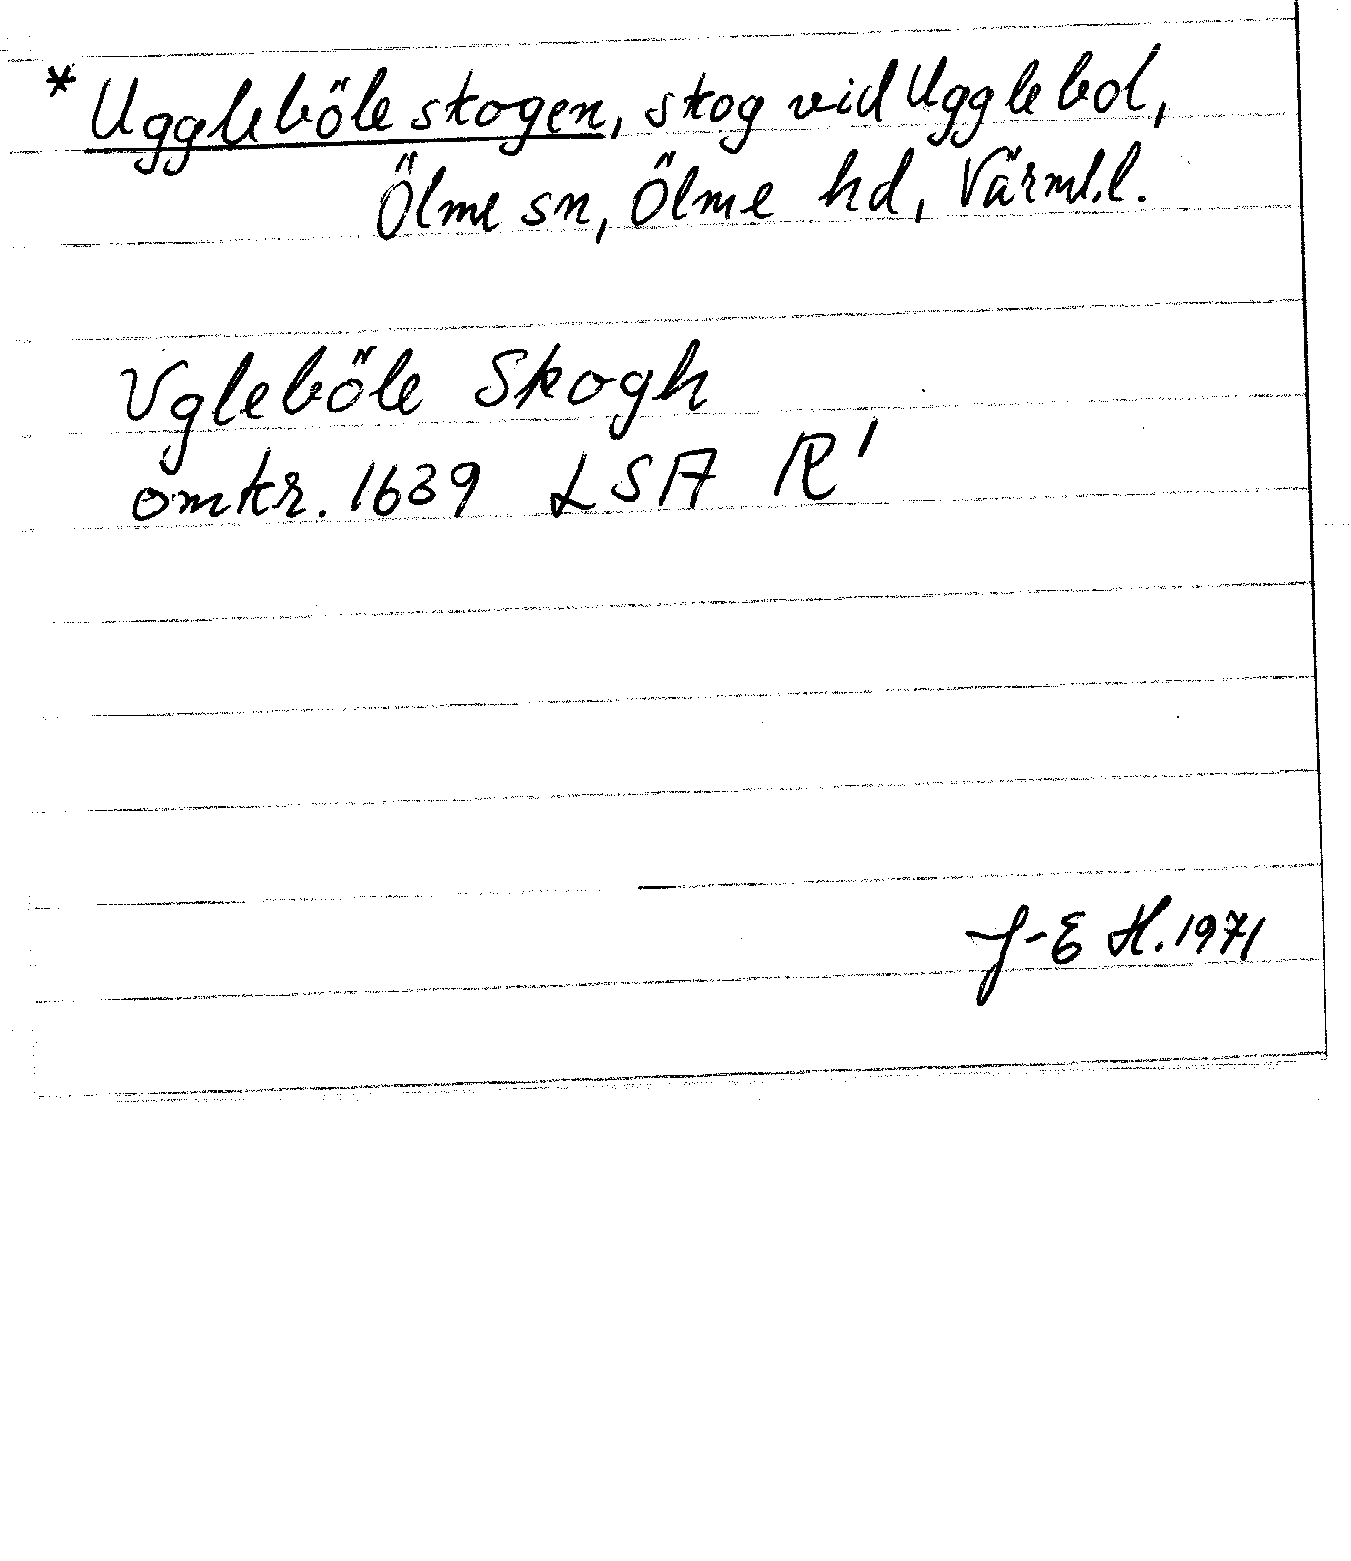 * Uggleböleskogen, skog vid Ugglebol,
Ölme sn, Ölme hd, Värml.l.
Vgleböle Skogh
omkr. 1639 LSA R'
J-E H. 1971